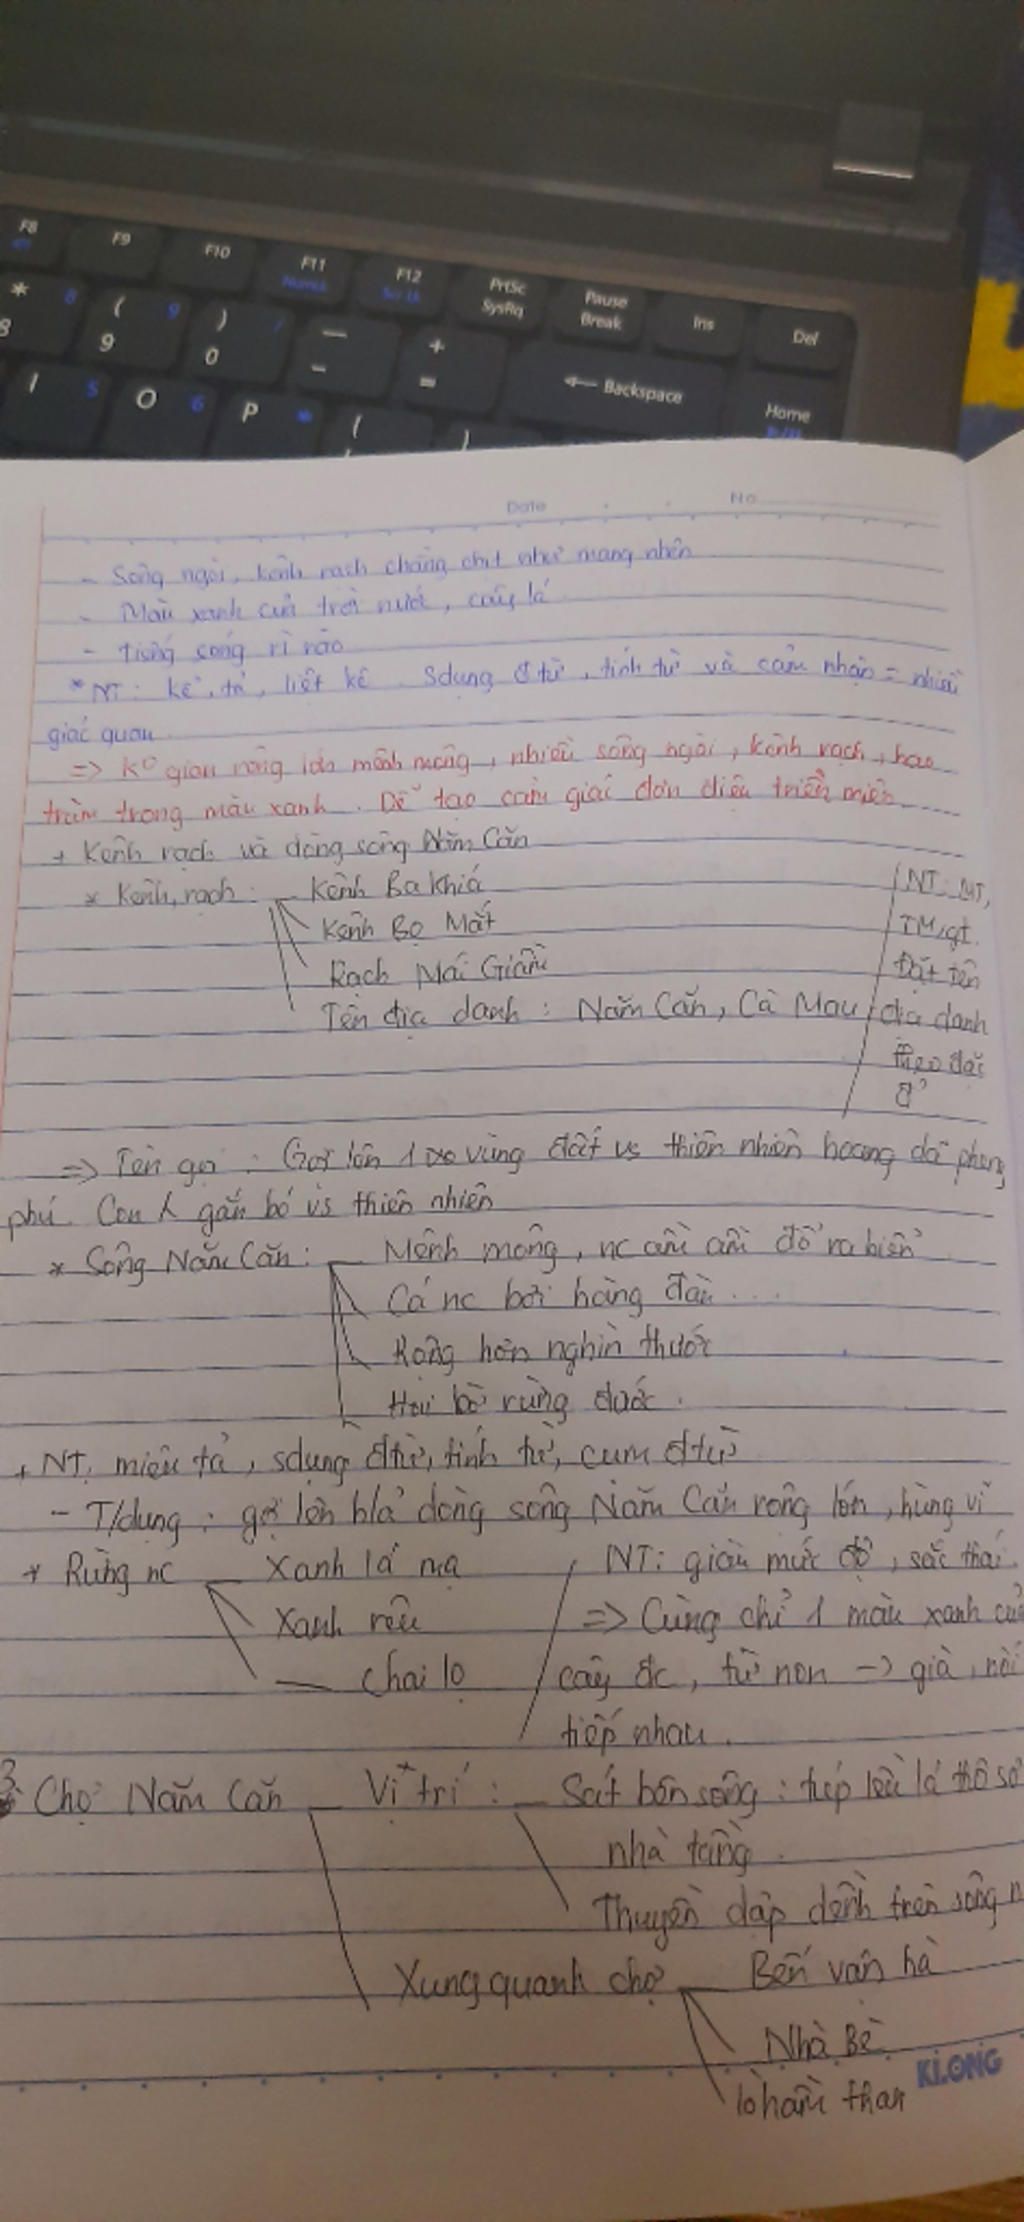 F8 F9 F10 F11 F12 PrtSc SysRq Pause Break Ins Del
* 8 8 ( 9 9 ) 0 / — - + = ← Backspace Home
I 5 O 6 P *
Date No
- Sông ngòi, kênh rạch chằng chịt như mạng nhện
- Màu xanh của trời nước, cây lá
- tiếng sóng rì rào
* NT: kể, tả, liệt kê. Sdụng đ từ, tính từ và cảm nhận = nhiều
giác quan
=> Ko gian rộng lớn mênh mông, nhiều sông ngòi, kênh rạch, bao
trùm trong màu xanh. Dễ tạo cảm giác đơn điệu triền miên
+ Kênh rạch và dòng sông Năm Căn
* Kênh, rạch: Kênh Ba Khía
Kênh Bọ Mắt
Rạch Mái Giầm
Tên địa danh: Năm Căn, Cà Mau
NT: MT,
TM, gt.
Đặt tên
địa danh
theo đặc
đ'
=> Tên gọi: Gợi lên 1 vùng đất vs thiên nhiên hoang dã phong
phú. Con gắn bó vs thiên nhiên
* Sông Năm Căn: Mênh mông, nc ầm ầm đổ ra biển
Cá nc bơi hàng đàn...
Rộng hơn nghìn thước
Hai bờ rừng đước.
+ NT. miêu tả, sdụng đtừ, tính từ, cụm đtừ
- T/dụng: gợi lên dòng sông Năm Căn rộng lớn, hùng vĩ
* Rừng nc Xanh lá mạ
Xanh rêu
chai lọ
NT: giảm mức độ, sắc thái.
=> Cùng chỉ 1 màu xanh của
cây đc, từ non -> già, nối
tiếp nhau.
3. Chợ Năm Căn Vị trí: Sát bên sông: túp lều lá thô sơ
nhà tầng.
Thuyền dập dềnh trên sông
Xung quanh chợ Bến vận hà
Nhà Bè
lò hầm than
KLONG